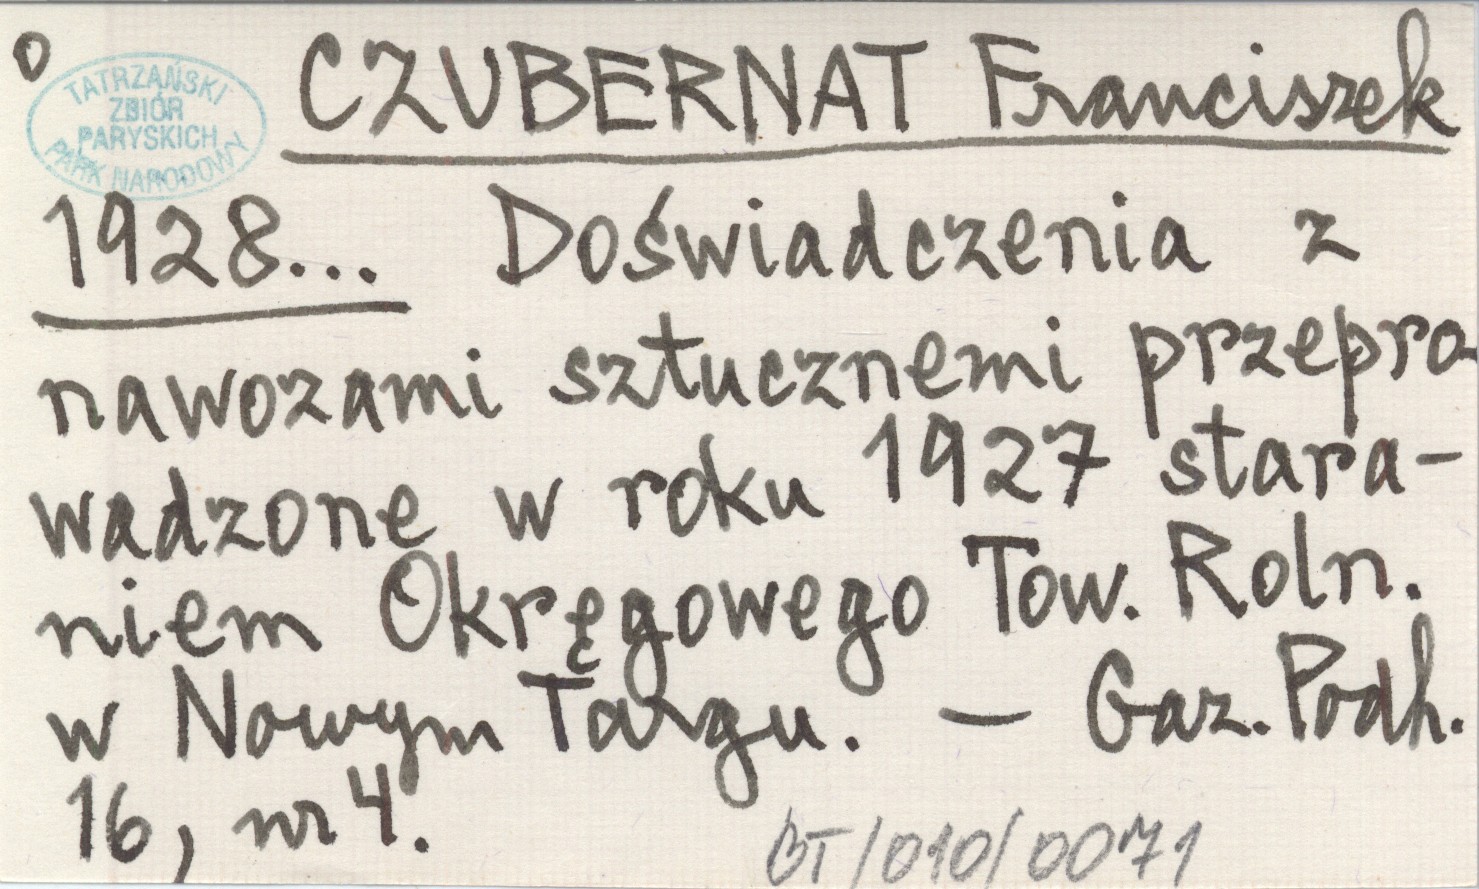 o
TATRZAŃSKI
ZBIÓR
PARYSKICH
PARK NARODOWY
CZUBERNAT Franciszek
1928... Doświadczenia z
nawozami sztucznemi przepro-
wadzone w roku 1927 stara-
niem Okręgowego Tow. Roln.
w Nowym Targu. — Gaz. Podh.
16, nr 4.
BT/010/0071